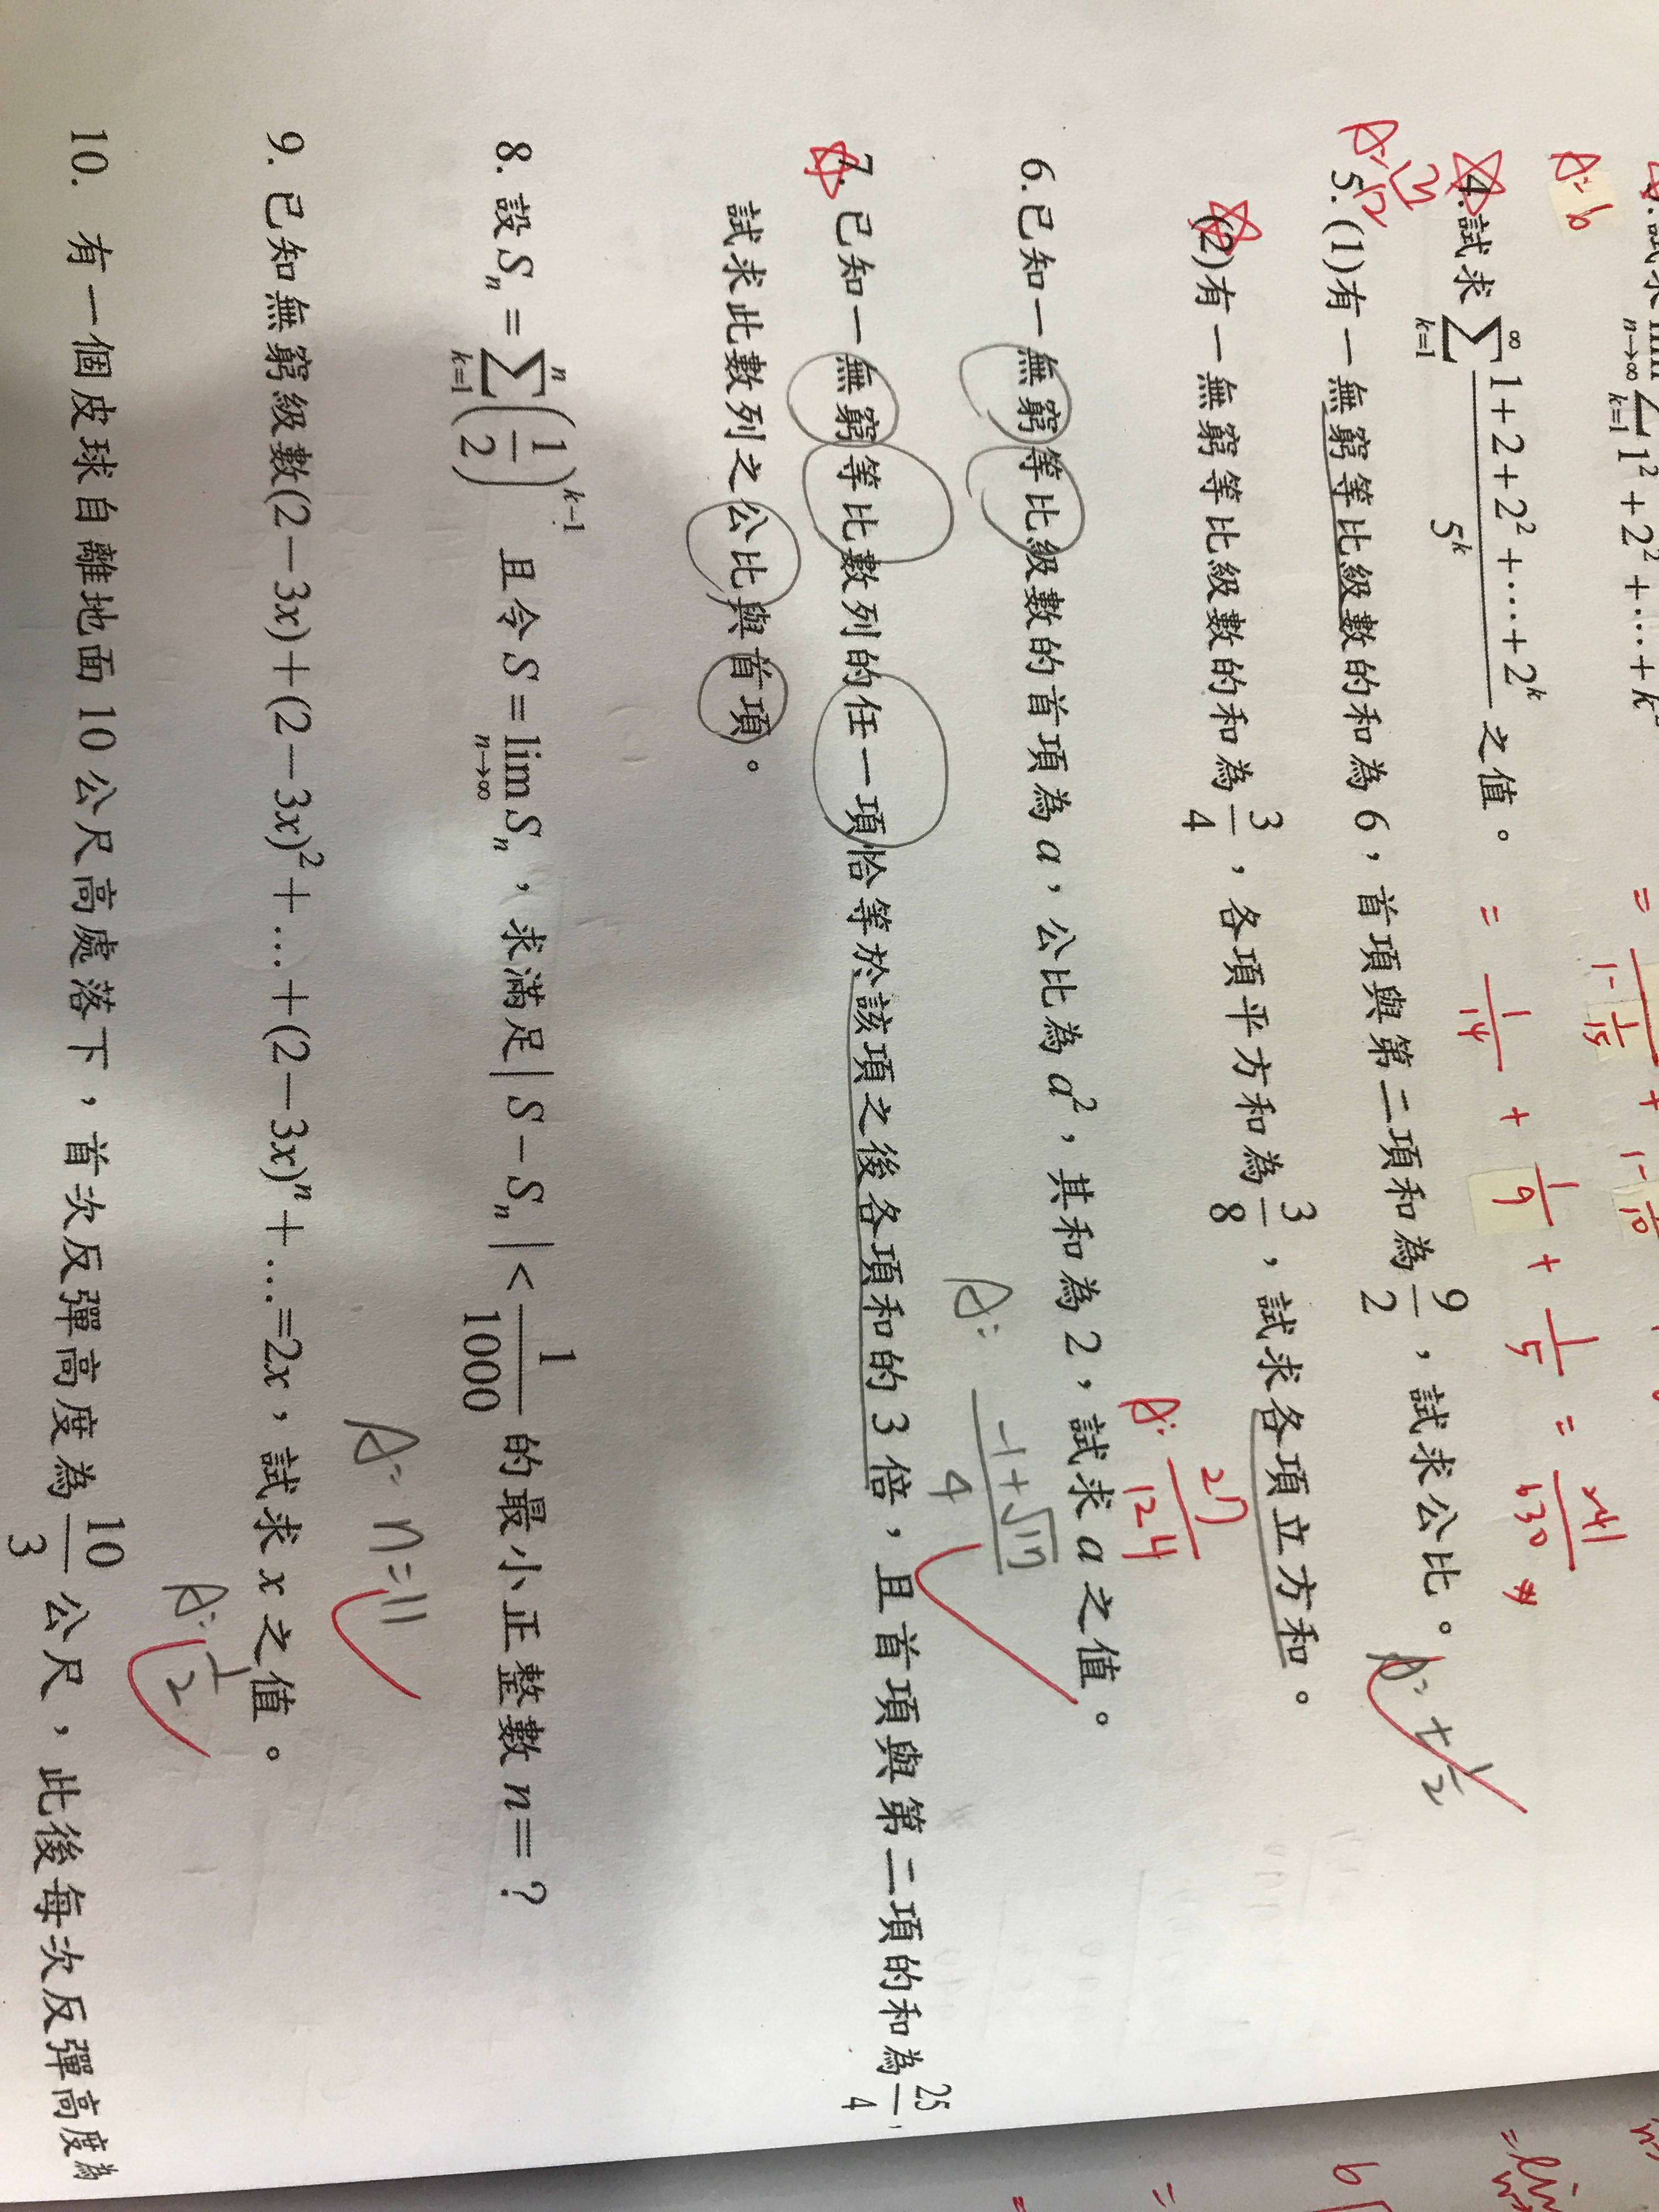 A: 6
= 1/(1-1/15) + 1/(1-1/10)
4.試求 ∑_{k=1}^{∞} (1+2+2²+…+2^k)/5^k 之值。 = 1/14 + 1/9 + 1/5 = 241/630
5.(1)有一無窮等比級數的和為 6,首項與第二項和為 9/2,試求公比。 A: ± 1/2
(2)有一無窮等比級數的和為 3/4,各項平方和為 3/8,試求各項立方和。
A: 27/124
6.已知一無窮等比級數的首項為 a,公比為 a²,其和為 2,試求 a 之值。
A: (-1+√17)/4
7.已知一無窮等比數列的任一項恰等於該項之後各項和的 3 倍,且首項與第二項的和為 25/4,
試求此數列之公比與首項。
8. 設 S_n = ∑_{k=1}^{n} (1/2)^{k-1} 且令 S = lim_{n→∞} S_n,求滿足 | S - S_n | < 1/1000 的最小正整數 n = ?
A: n=11
9. 已知無窮級數(2-3x)+(2-3x)²+…+(2-3x)ⁿ+…=2x,試求 x 之值。
A: 1/2
10. 有一個皮球自離地面 10 公尺高處落下,首次反彈高度為 10/3 公尺,此後每次反彈高度為